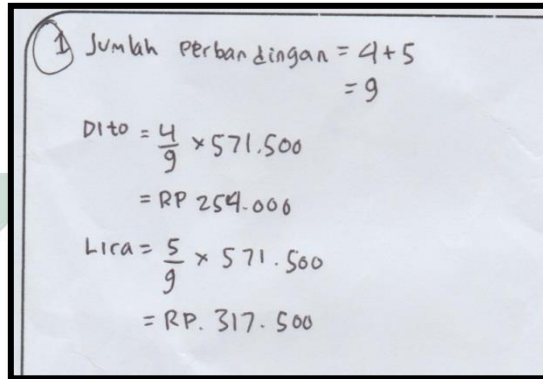 1 Jumlah perbandingan = 4+5
= 9
Dito = 4/9 × 571.500
= RP 254.000
Lira = 5/9 × 571.500
= RP. 317.500